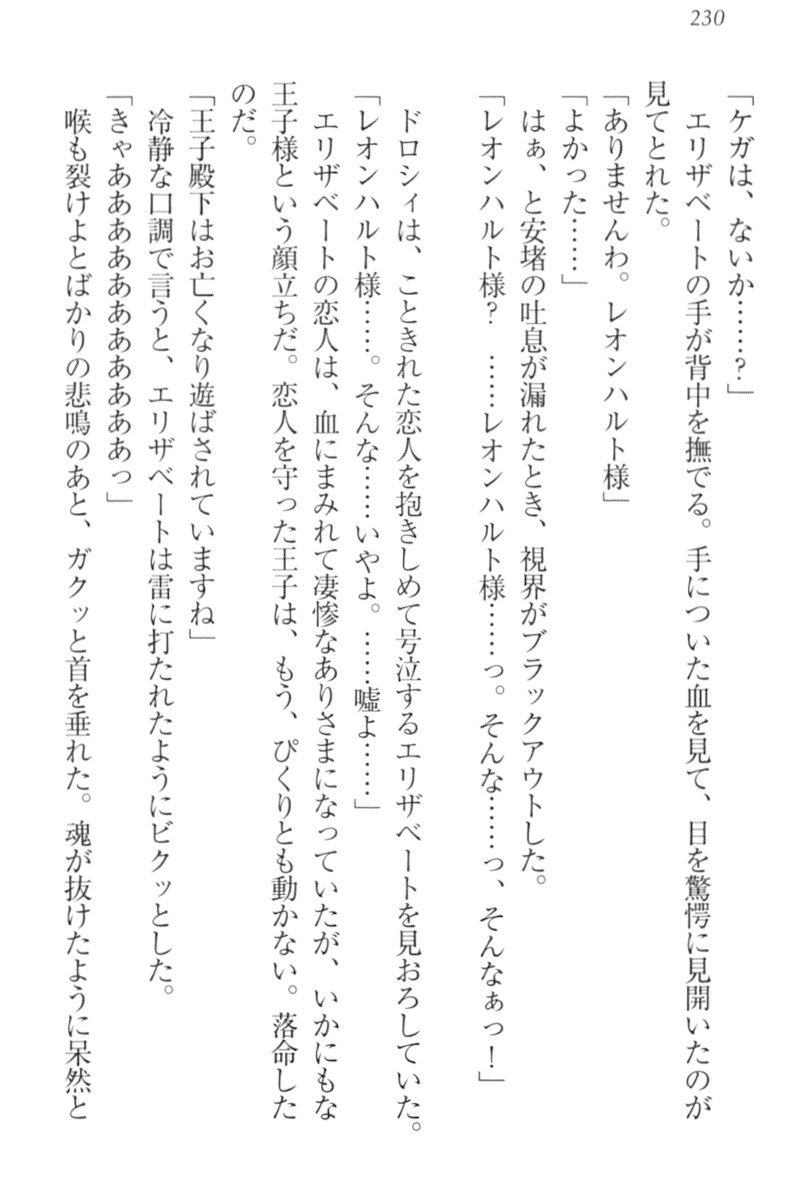 230
「ケガは、ないか……?」
　エリザベートの手が背中を撫でる。手についた血を見て、目を驚愕に見開いたのが
見てとれた。
「ありませんわ。レオンハルト様」
「よかった……」
　はぁ、と安堵の吐息が漏れたとき、視界がブラックアウトした。
「レオンハルト様?　……レオンハルト様……っ。そんな……っ、そんなぁっ!」

　ドロシィは、こときれた恋人を抱きしめて号泣するエリザベートを見おろしていた。
「レオンハルト様……。そんな……いやよ。……嘘よ……」
　エリザベートの恋人は、血にまみれて凄惨なありさまになっていたが、いかにもな
王子様という顔立ちだ。恋人を守った王子は、もう、ぴくりとも動かない。落命した
のだ。
「王子殿下はお亡くなり遊ばされていますね」
　冷静な口調で言うと、エリザベートは雷に打たれたようにビクッとした。
「きゃあああああああああああっ」
　喉も裂けよとばかりの悲鳴のあと、ガクッと首を垂れた。魂が抜けたように呆然と